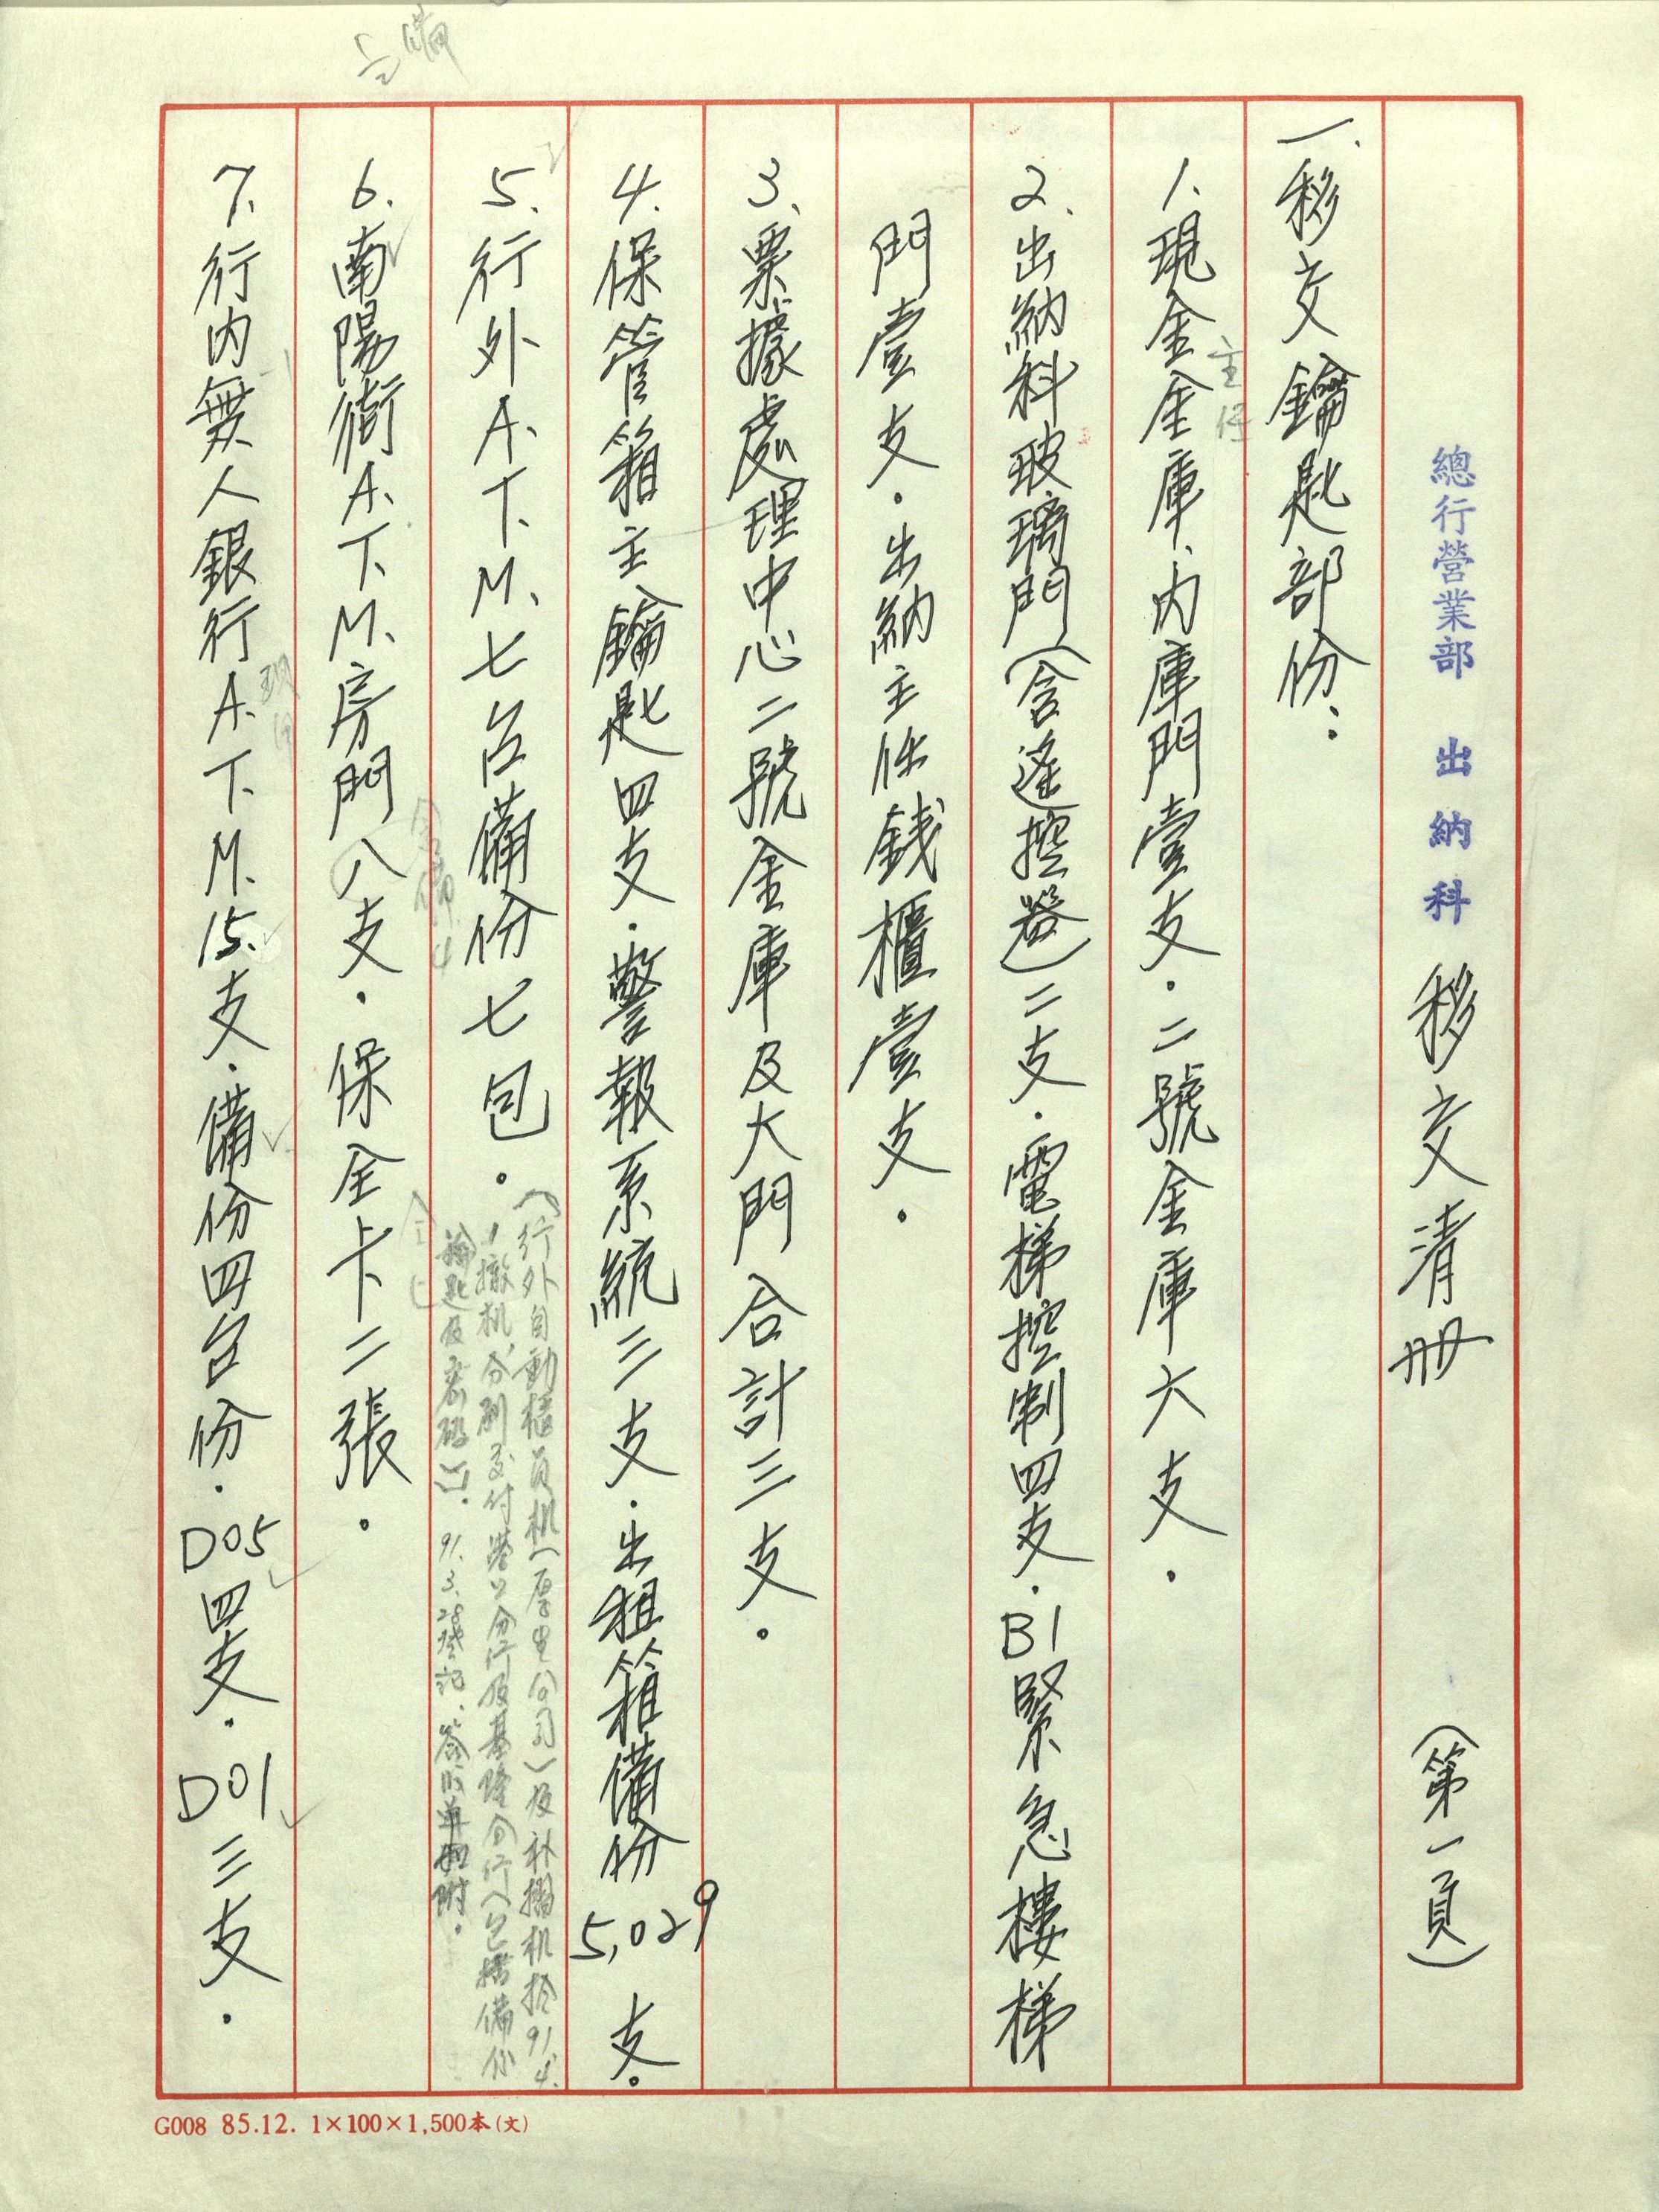 總行營業部 出納科 移交清冊 (第一頁)
一.移交鑰匙部份:
1.現金金庫、內庫門壹支.二號金庫六支.
2.出納科玻璃門(含遙控器)二支.電梯控制四支.B1緊急樓梯
門壹支.出納主任錢櫃壹支.
3.票據處理中心二號金庫及大門合計三支.
4.保管箱主鑰匙四支.警報系統三支.出租箱備份5,029支.
5.行外A.T.M.七台備份七包.
(行外自動櫃員机(厚生公司)及补摺机於91.4.
1撤机,分別交付 分行及基隆分行(包括備份
鑰匙及密碼)).91.3.28登記.簽收單如附.
6.南陽街A.T.M.房門八支.保全卡二張.
7.行內無人銀行A.T.M.15.支.備份四台份.D05四支.D01三支.
主備
G008 85.12. 1×100×1,500本(文)